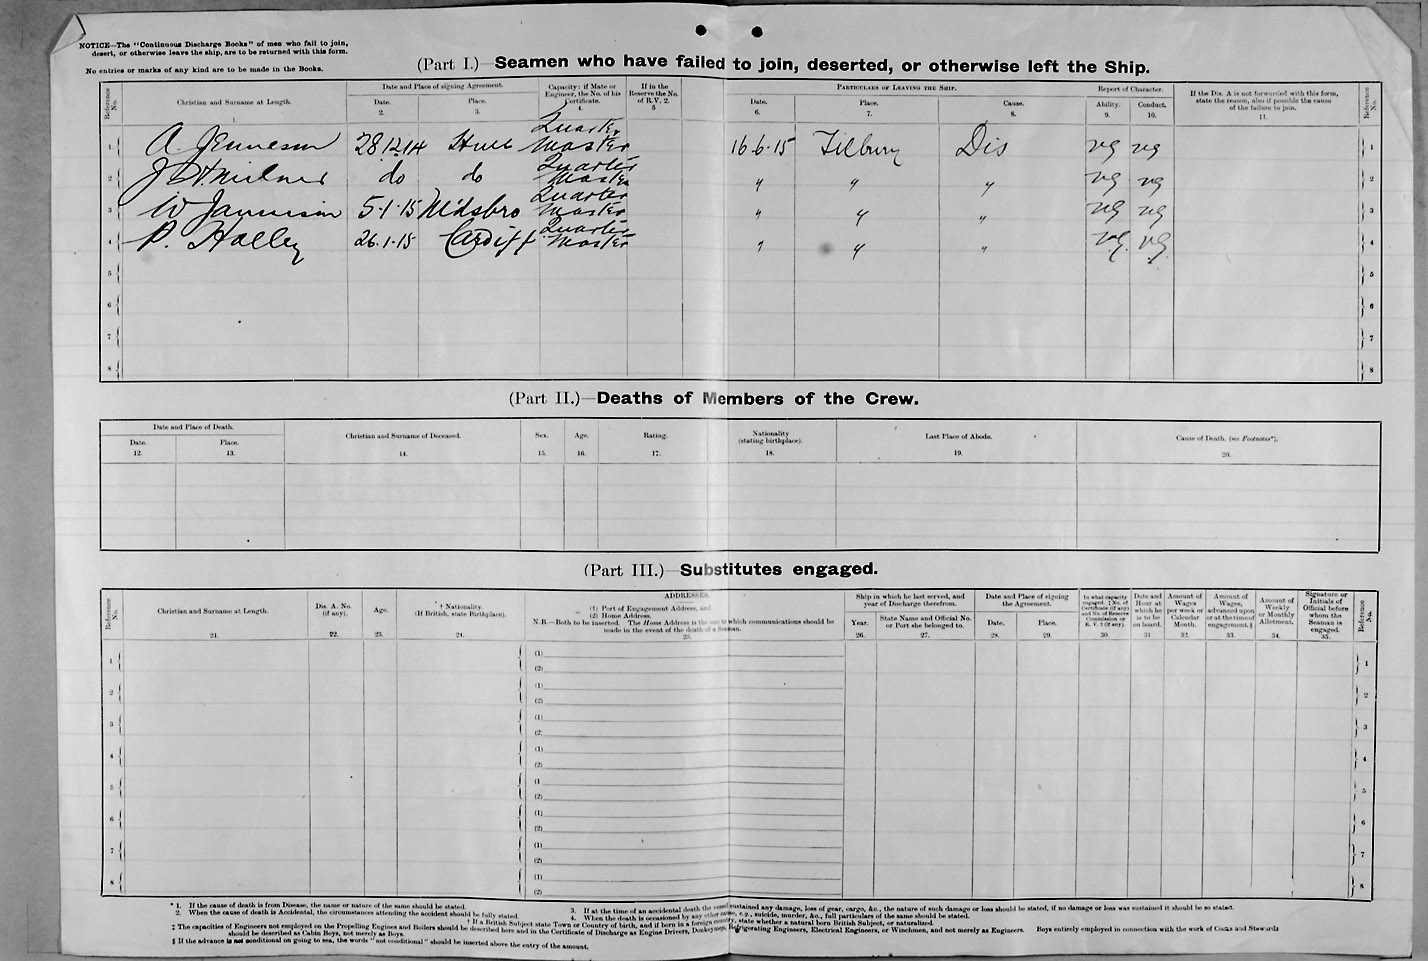 NOTICE—The "Continuous Discharge Books" of men who fail to join,
desert, or otherwise leave the ship, are to be returned with this form.
No entries or marks of any kind are to be made in the Books.
(Part I.)—Seamen who have failed to join, deserted, or otherwise left the Ship.
Reference No. Christian and Surname at Length. 1. Date and Place of signing Agreement. Date. 2. Place. 3. Capacity: if Mate or Engineer, the No. of his Certificate. 4. If in the Reserve the No. of R.V. 2. 5 Particulars of Leaving the Ship. Date. 6. Place. 7. Cause. 8. Report of Character. Ability. 9. Conduct. 10. If the Dis. A is not forwarded with this form, state the reason, also if possible the cause of the failure to join. 11. Reference No.
1 A. 28 12 14 Hull Quarter Master 16.6.15 Tilbury Dis vg vg 1
2 J. H. Milner do do Quarter Master " " " vg vg 2
3 W 5.1.15 M'dsbro Quarter Master " " " vg vg 3
4 P. Halley 26.1.15 Cardiff Quarter Master " " " vg. vg. 4
5 5
6 6
7 7
8 8
(Part II.)—Deaths of Members of the Crew.
Date and Place of Death. Date. 12. Place. 13. Christian and Surname of Deceased. 14. Sex. 15. Age. 16. Rating. 17. Nationality (stating birthplace). 18. Last Place of Abode. 19. Cause of Death. (see Footnotes*). 20.
(Part III.)—Substitutes engaged.
Reference No. Christian and Surname at Length. 21. Dis. A. No. (if any). 22. Age. 23. † Nationality. (If British, state Birthplace). 24. ADDRESSES. (1) Port of Engagement Address, and (2) Home Address. N.B.—Both to be inserted. The Home Address is the one to which communications should be made in the event of the death of a Seaman. 25. Ship in which he last served, and year of Discharge therefrom. Year. 26. State Name and Official No. or Port she belonged to. 27. Date and Place of signing the Agreement. Date. 28. Place. 29. In what capacity engaged. ‡ No. of Certificate (if any) and No. of Reserve Commission or R. V. 2 (if any). 30. Date and Hour at which he is to be on board. 31 Amount of Wages per week or Calendar Month. 32. Amount of Wages, advanced upon or at the time of engagement.§ 33. Amount of Weekly or Monthly Allotment. 34. Signature or Initials of Official before whom the Seaman is engaged. 35. Reference No.
1 (1) 1
(2)
2 (1) 2
(2)
3 (1) 3
(2
4 (1) 4
(2)
5 (1 5
(2)
6 (1) 6
(2)
7 (1) 7
(2)
8 (1) 8
(2)
* 1. If the cause of death is from Disease, the name or nature of the same should be stated.
2. When the cause of death is Accidental, the circumstances attending the accident should be fully stated.
3. If at the time of an accidental death the vessel sustained any damage, loss of gear, cargo, &c., the nature of such damage or loss should be stated, if no damage or loss was sustained it should be so stated.
4. When the death is occasioned by any other cause, e.g., suicide, murder, &c., full particulars of the same should be stated.
† If a British Subject state Town or Country of birth, and if born in a foreign country, state whether a natural born British Subject, or naturalized.
‡ The capacities of Engineers not employed on the Propelling Engines and Boilers should be described here and in the Certificate of Discharge as Engine Drivers, Donkeymen, Refrigerating Engineers, Electrical Engineers, or Winchmen, and not merely as Engineers. Boys entirely employed in connection with the work of Cooks and Stewards
should be described as Cabin Boys, not merely as Boys.
§ If the advance is not conditional on going to sea, the words "not conditional" should be inserted above the entry of the amount.